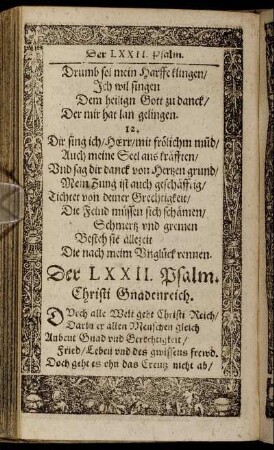 Der LXXII. Psalm.
Drumb sol mein Harffe klingen/
Ich wil singen
Dem heilign Gott zu danck/
Der mir hat lan gelingen.
12.
Dir sing ich/HErr/mit frölichm mūd/
Auch meine Seel aus kräfften/
Vnd sag dir danck von Hertzen grund/
Mein Zung ist auch geschäfftig/
Tichtet von deiner Grechtigkeit/
Die Feind müssen sich schämen/
Schmertz vnd gremen
Besteh sie allezeit
Die nach meim Vnglück rennen.
Der LXXII. Psalm.
Christi Gnadenreich.
DVrch alle Welt geht Christi Reich/
Darin er allen Menschen gleich
Anbeut Gnad vnd Gerechtigkeit/
Fried/Leben vnd des gwissens frewd.
Doch geht es ohn das Creutz nicht ab/